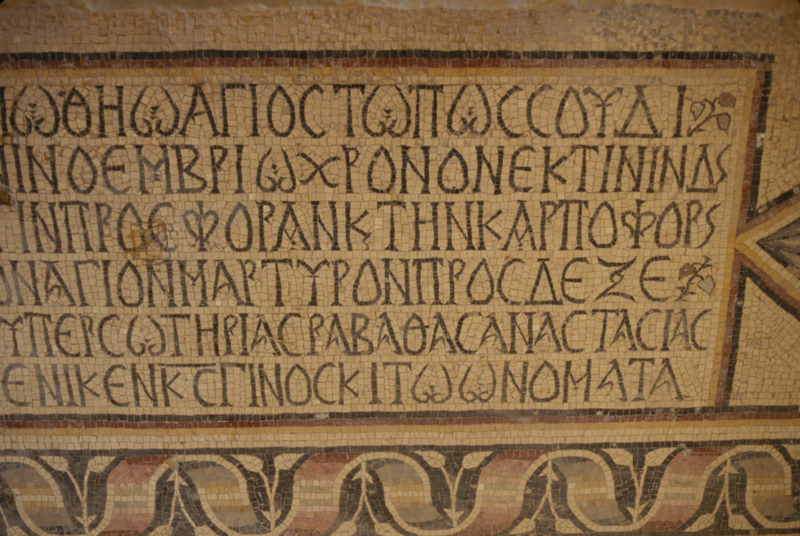 ΩΘΗΩΑΓΙΟΣΤΩΠΩΣΣΟΥΔΙ
ΝΙΝΟΕΜΒΡΙΩΧΡΟΝΟΝΕΚΤΙΝΙΝΔS
ΤΙΝΠΡΟΣΦΟΡΑΝΚΤΗΝΚΑΡΠΟΦΟΡS
ΟΝΑΓΙΟΝΜΑΡΤΥΡΟΝΠΡΟΣΔΕΞΕ
ΥΠΕΡΣΩΤΗΡΙΑΣΡΑΒΑΘΑΣΑΝΑΣΤΑΣΙΑΣ
ΕΝΙΚΕΝΚΣΓΙΝΟΣΚΙΤΩΩΝΟΜΑΤΑ